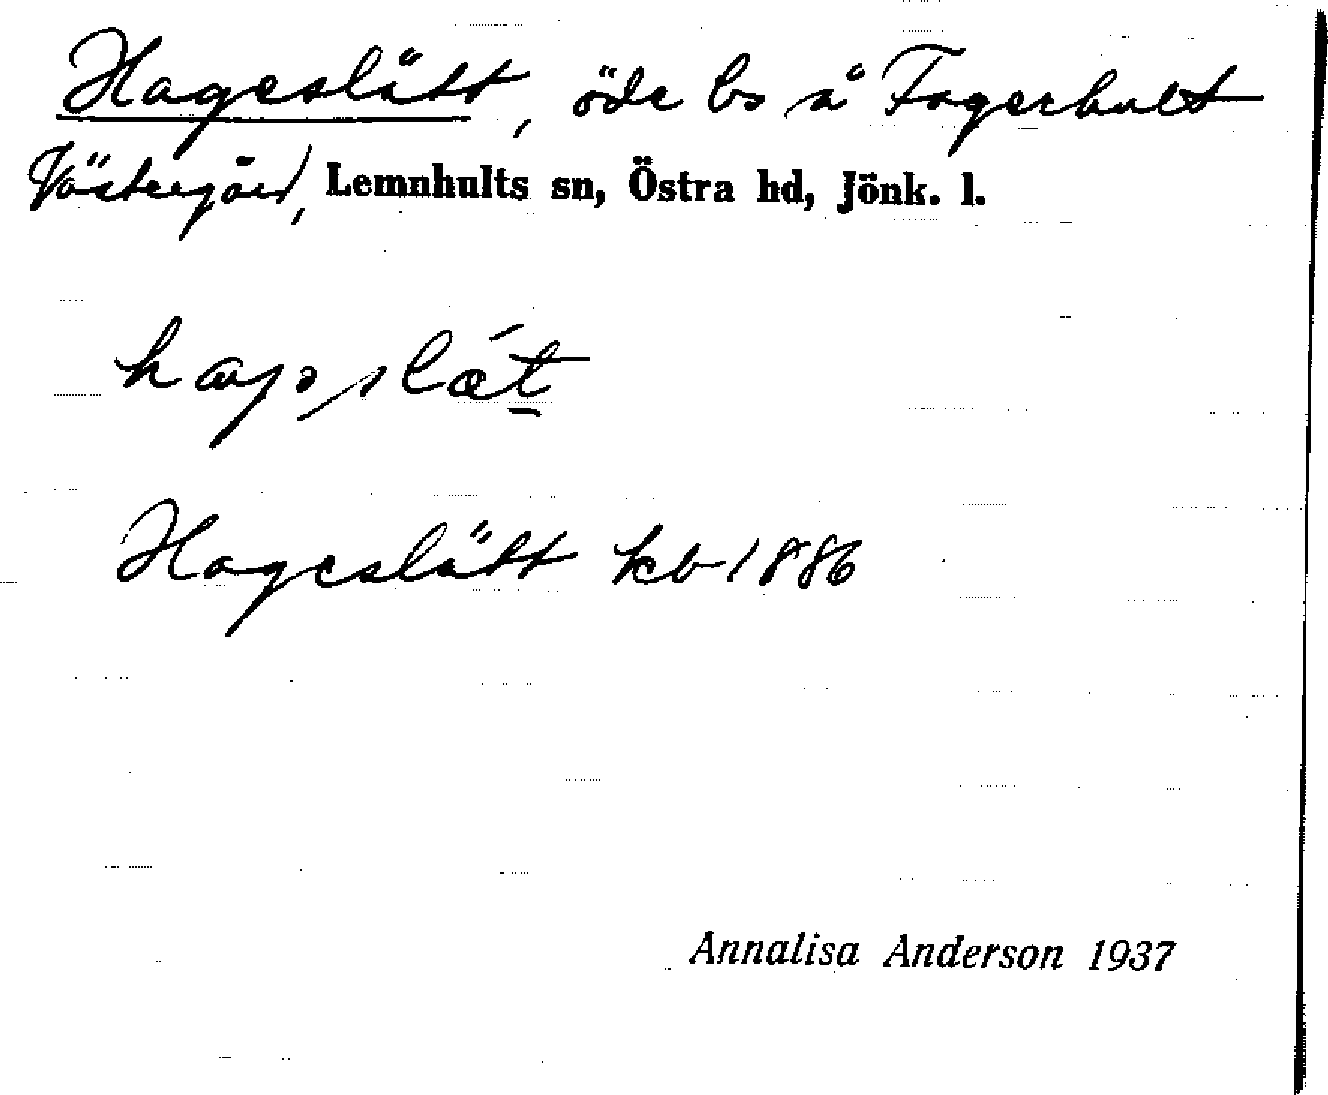 Hageslätt, öde bs å Fagerhult
Västergård, Lemnhults sn, Östra hd, Jönk. l.
Hageslätt kb 1886
Annalisa Anderson 1937